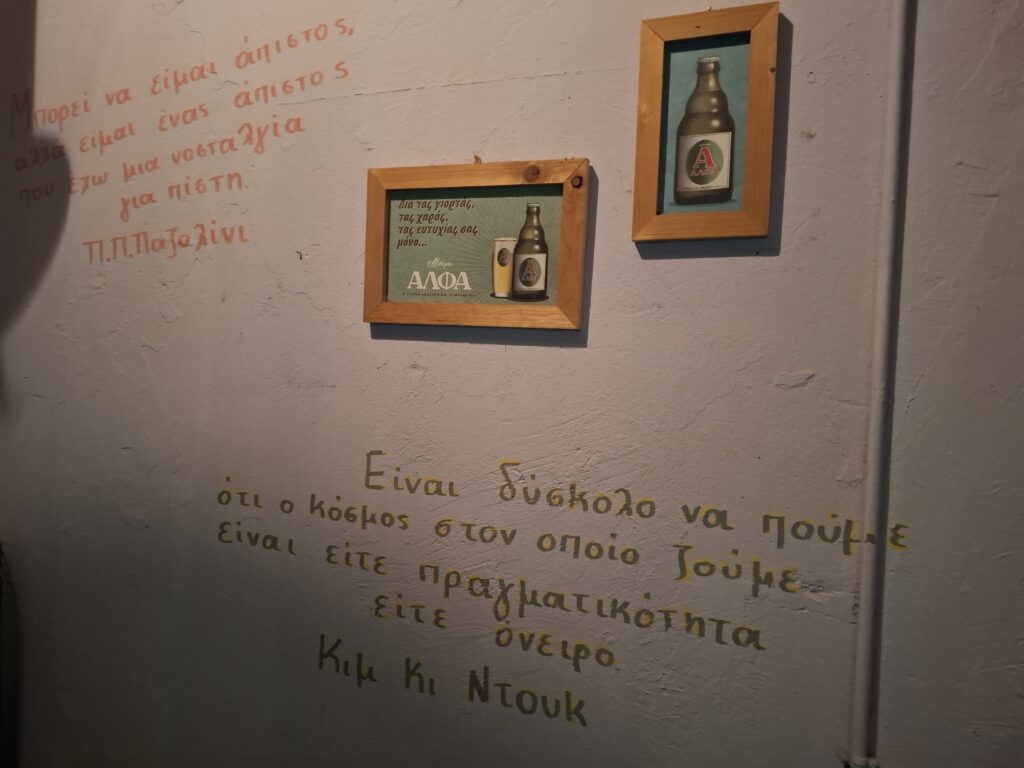 Μπορεί να είμαι άπιστος,
αλλά είμαι ένας άπιστος
που έχω μια νοσταλγία
για πίστη.
Π.Π.Παζολίνι
Δια τας γιορτάς,
τας χαράς,
τας ευτυχίας σας
μόνο...
Μπίρα
ΑΛΦΑ
Α
ΑΛΦΑ
Είναι δύσκολο να πούμε
ότι ο κόσμος στον οποίο ζούμε
είναι είτε πραγματικότητα
είτε όνειρο
Κιμ Κι Ντουκ